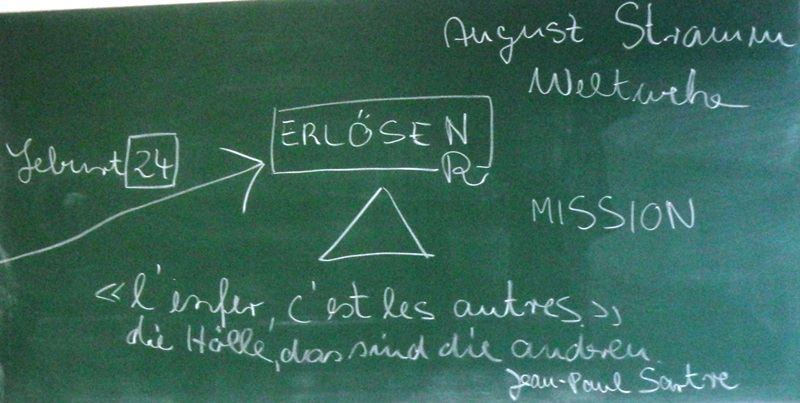 August Stramm
Weltwehe
ERLÖSEN
R
Geburt 24
MISSION
« l'enfer, c'est les autres »
die Hölle, das sind die anderen.
Jean-Paul Sartre